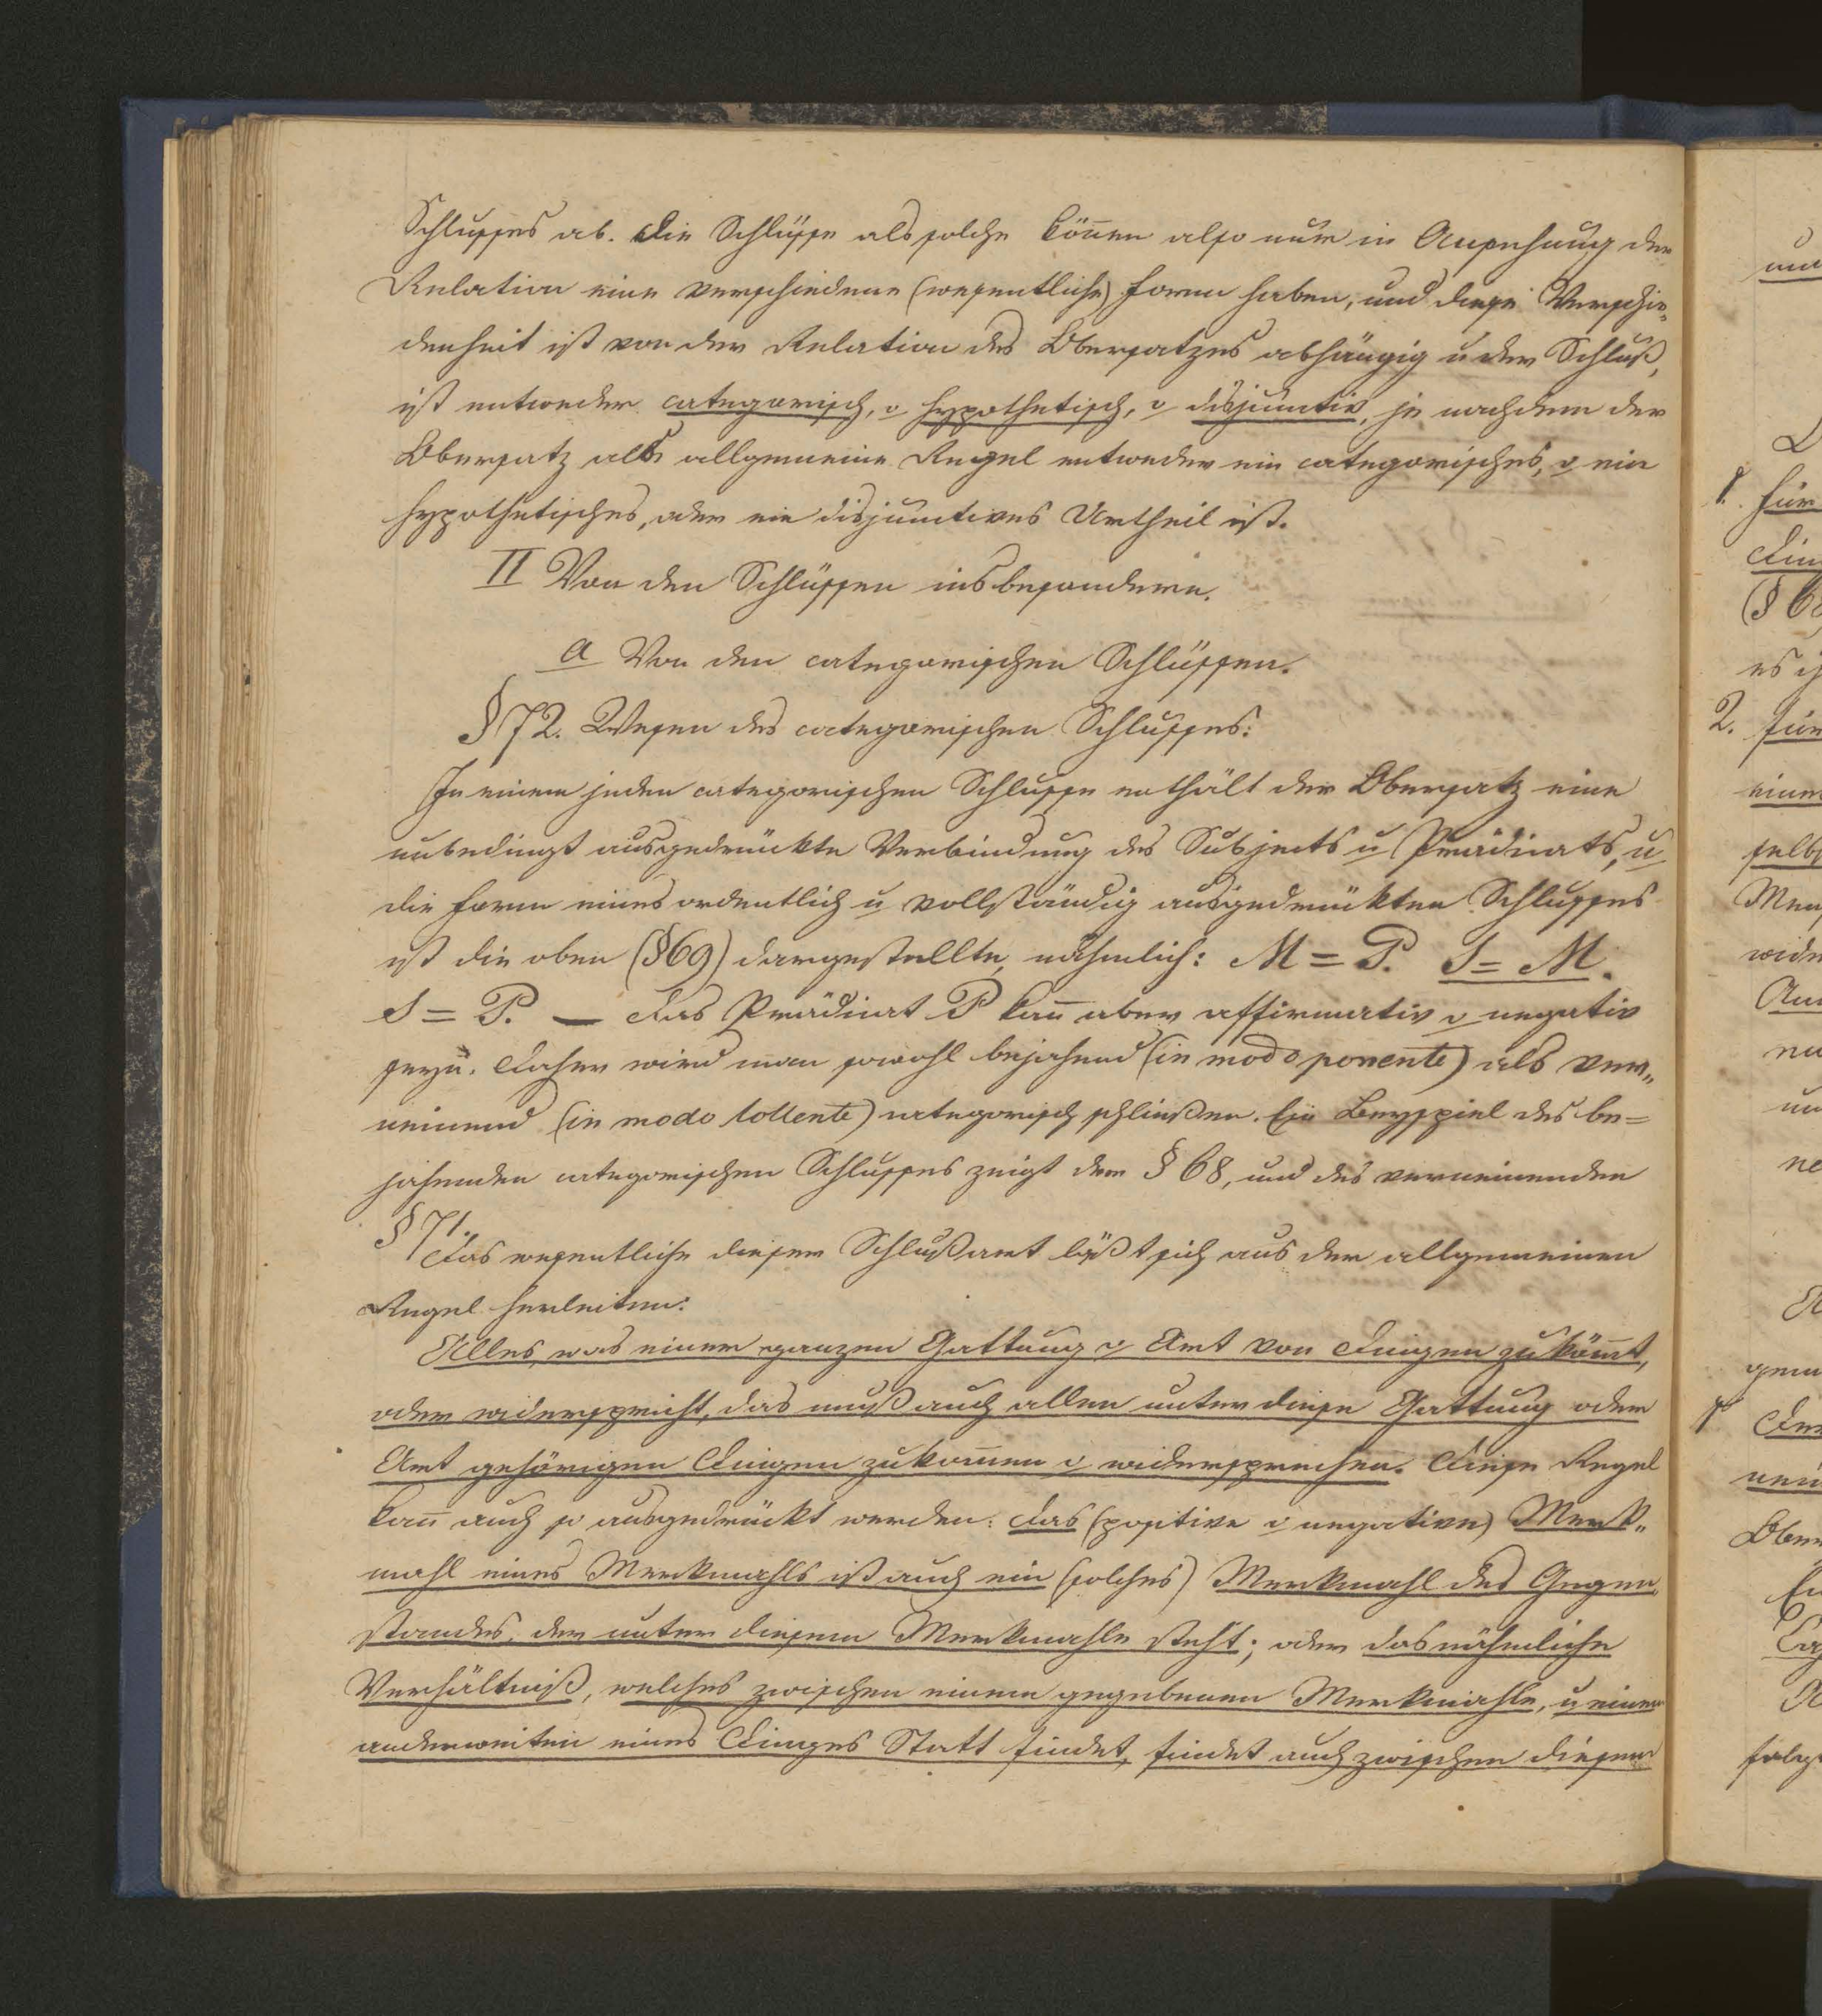 Schlusses ab. Die Schlüsse als solche kön̅en also nur in Ansehung der
Relation eine verschiedene (wesentliche) Form haben, und diese Verschie„
denheit ist von der Relation des Obersatzes abhängig u der Schluß,
ist entweder categorisch, o hypothetisch, o disjunctiv, je nachdem der
Obersatz als allgemeine Regel entweder ein categorisches, o ein
hypothetisches, oder ein disjunctives Urtheil ist.
II Von den Schlüssen insbesondere.
a Von den categorischen Schlüssen.
§ 72. Wesen des categorischen Schlusses:
In einem jeden categorischen Schlusse enthält der Obersatz eine
unbedingt ausgedrückte Verbindung des Subjects u Prädicats, u
die Form eines ordentlich u vollständig ausgedrückten Schlusses
ist die oben (§69) dargestellte, nähmlich: M = P. S = M.
S = P. — Das Prädicat P kan̅ aber affirmativ o negativ
seyn. Daher wird man sowohl bejahend (in modo ponente) als ver„
neinend (in modo tollente) categorisch schließen. Ein Beyspiel des be=
jahenden categorischen Schlusses zeigt der § 68, und des verneinenden
§ 71.
Das wesentliche dieser Schlußart läßt sich aus der allgemeinen
Regel herleiten:
Alles, was einer ganzen Gattung o Art von Dingen zuköm̅t,
oder widerspricht, das muß auch allen unter diese Gattung oder
Art gehörigen Dingen zukom̅en o widersprechen. Diese Regel
kan̅ auch so ausgedrückt werden: Das (positive o negative) Merk„
mahl eines Merkmahls ist auch ein (solches) Merkmahl des Gegen„
standes, der unter diesem Merkmahle steht; oder das nähmliche
Verhältniß, welches zwischen einem gegebenen Merkmahle, u einem
anderweiten eines Dinges Statt findet, findet auch zwischen diesem